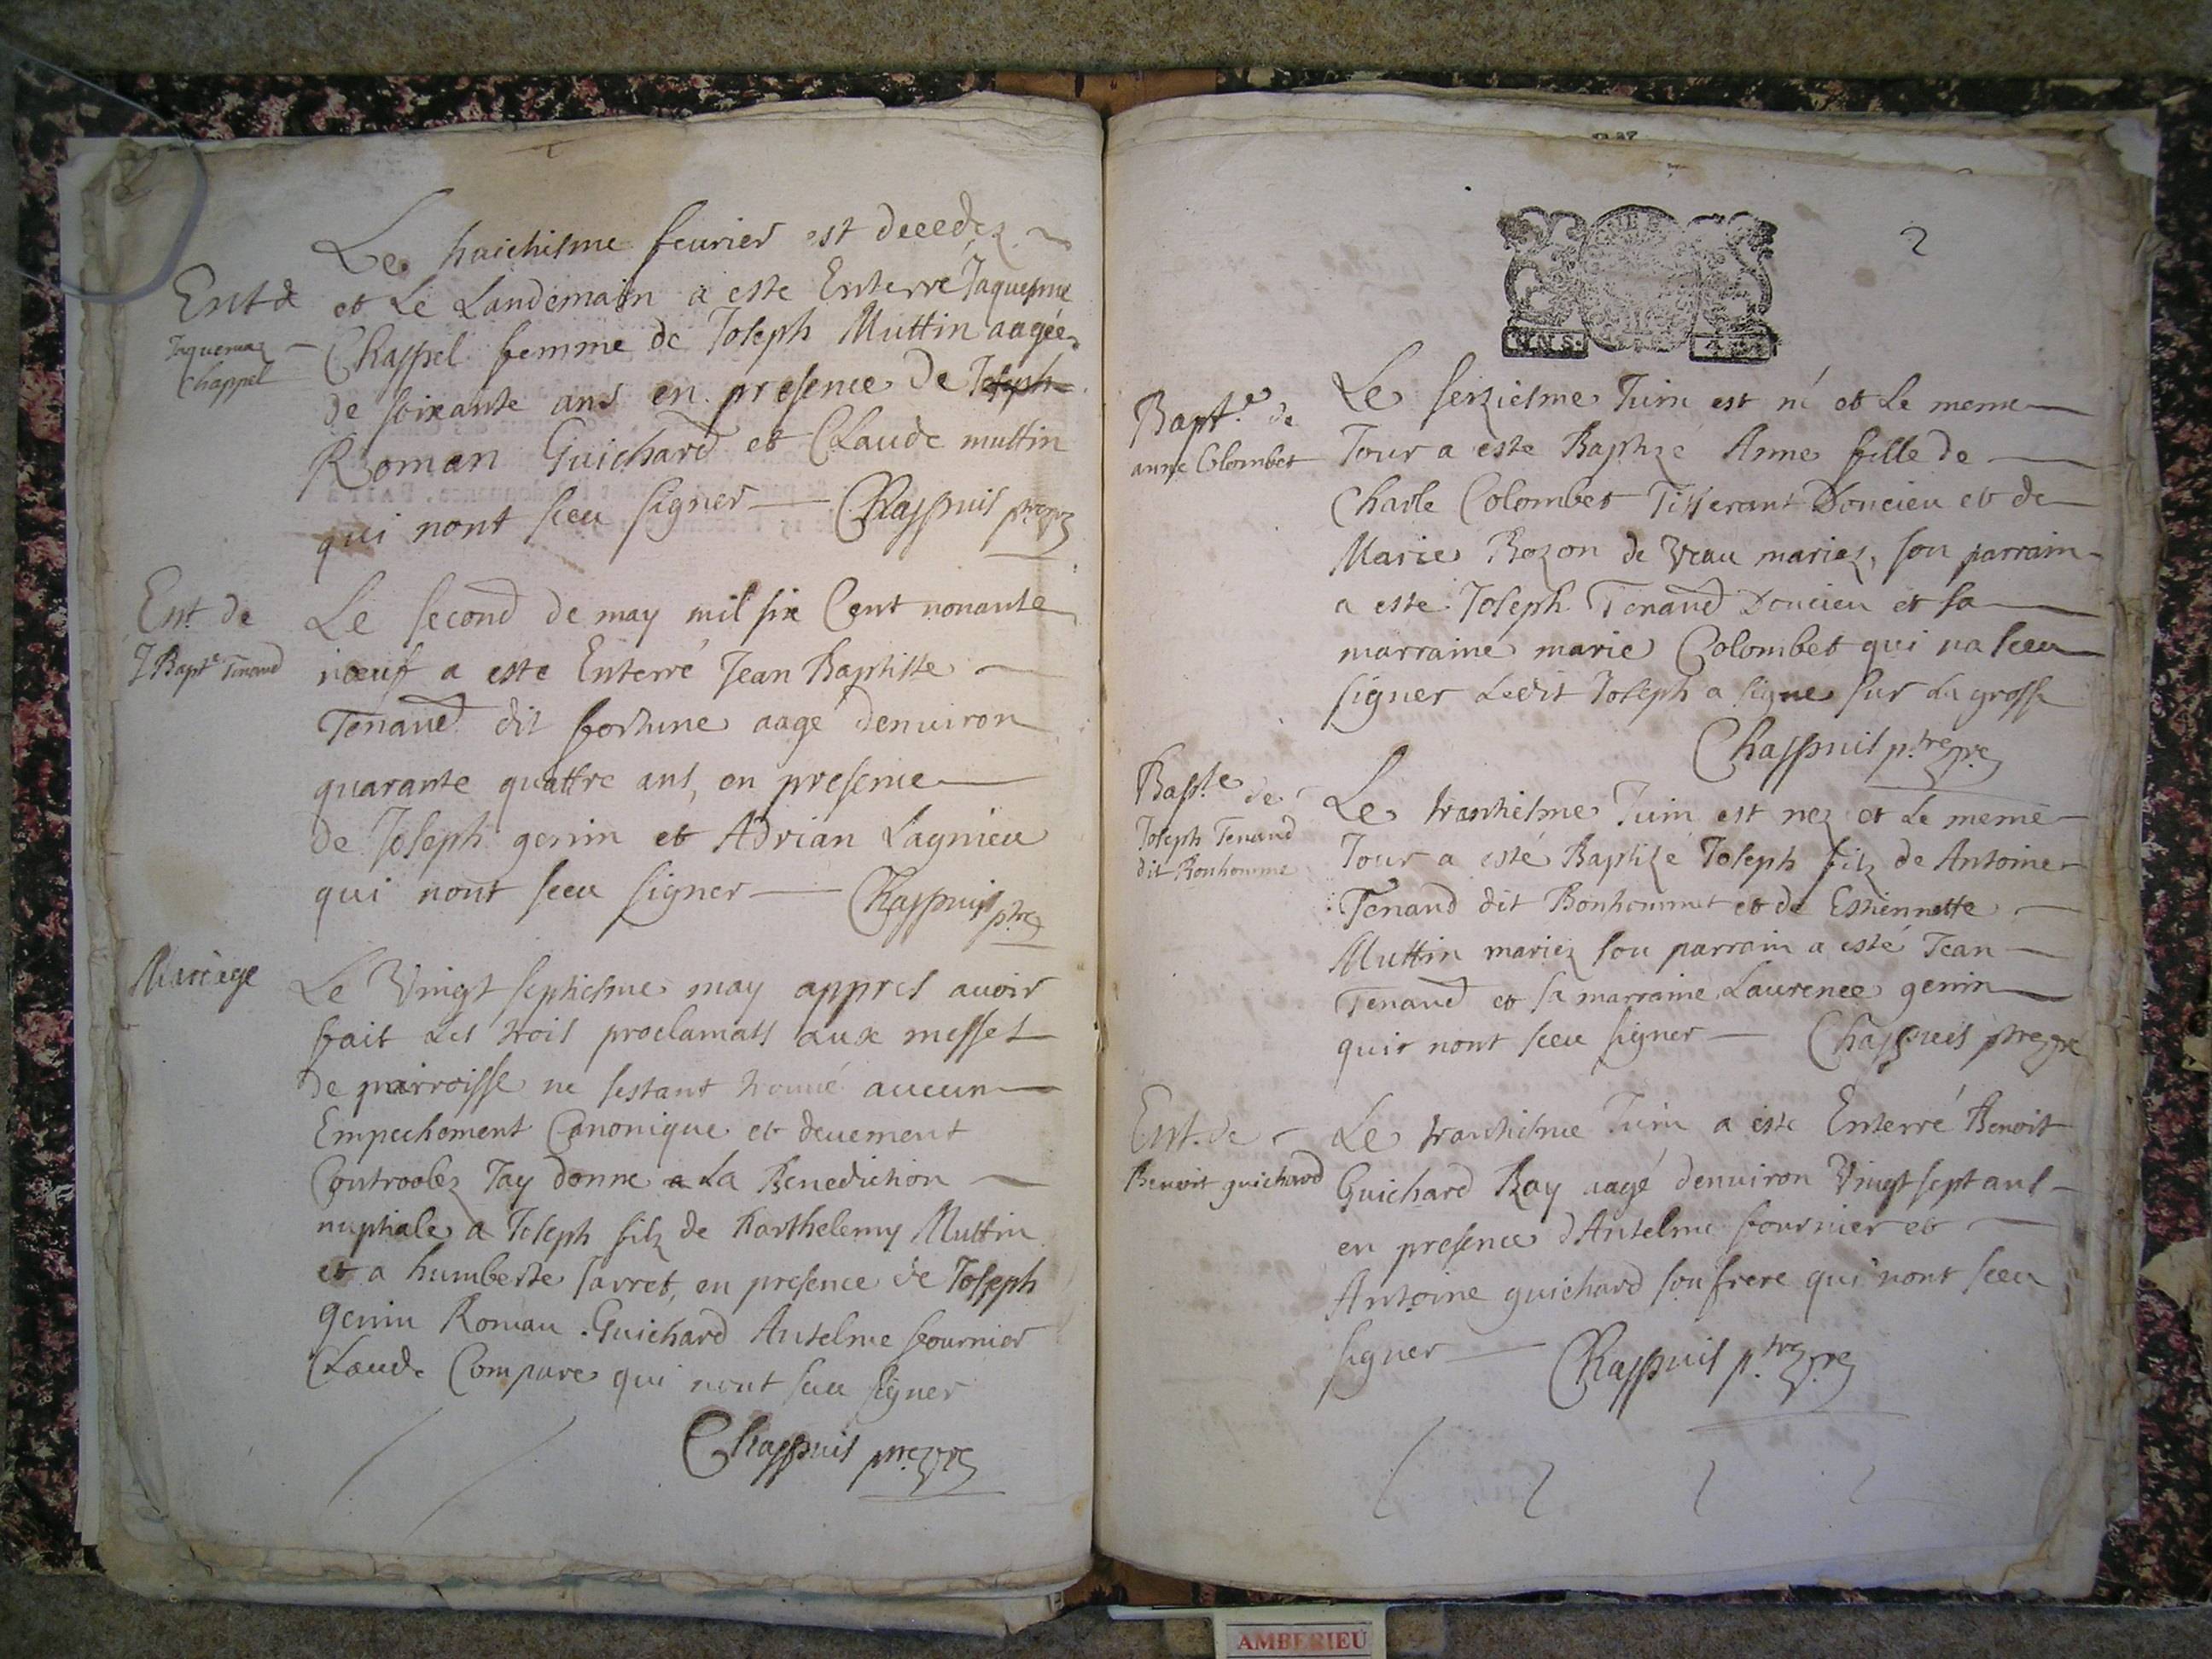 Le huichisme feurier est decedez
Ent de et Le Landemain a este Enterré Jaquesme
Jaquemaz Chappel femme de Joseph Muttin aagée
Chappel
de soixante ans en presence de Joseph
Roman Guichard et Claude muttin
qui nont sceu signer Chappuis ptre
Ent. de Le second de may mil six Cent nonante
J Bapte Tenand nœuf a este Enterré Jean Baptiste
Tenand dit fortune aagé denuiron
quarante quattre ans, en presence
de Joseph genin et Adrian Lagnieu
qui nont sceu signer Chappuis ptre
Mariage Le Vingt septiesme may appres auoir
fait Les trois proclamats aux messes
de parroisse ne sestant trouué aucun
Empechement Canonique et deuement
Controolez Jay donne a La Benediction
nuptiale a Joseph filz de Barthelemy Muttin
et a humberte sarret, en presence de Joseph
genin Roman Guichard Antelme fournier
Claude Compare qui nont sceu signer
Chappuis ptre
2
Bapte. de Le seiziesme Juin est né et Le meme
anne Colombet Jour a este Baptizé Anne fille de
Charle Colombet Tisserant Doncieu et de
Marie Bozon de Veau mariez, son parrain
a este Joseph Tenand Doncieu et sa
marraine marie Colombet qui na sceu
signer Ledit Joseph a signe sur La grosse
Chappuis ptre
Bapte de Le trantiesme Juin est nez et Le meme
Joseph Tenand Jour a esté Baptizé Joseph filz de Antoine
dit Bonhomme
Tenand dit Bonhommet et de Estiennette
Muttin mariez son parrain a esté Jean
Tenand et sa marraine Laurence genin
qui nont sceu signer Chappuis ptre
Ent. de Le trantiesme Juin a este Enterré Benoit
Benoit guichard Guichard Ray aagé denuiron Vingt sept ans
en presence dAntelme fournier et
Antoine guichard son frere qui nont sceu
signer Chappuis ptre
AMBERIEU